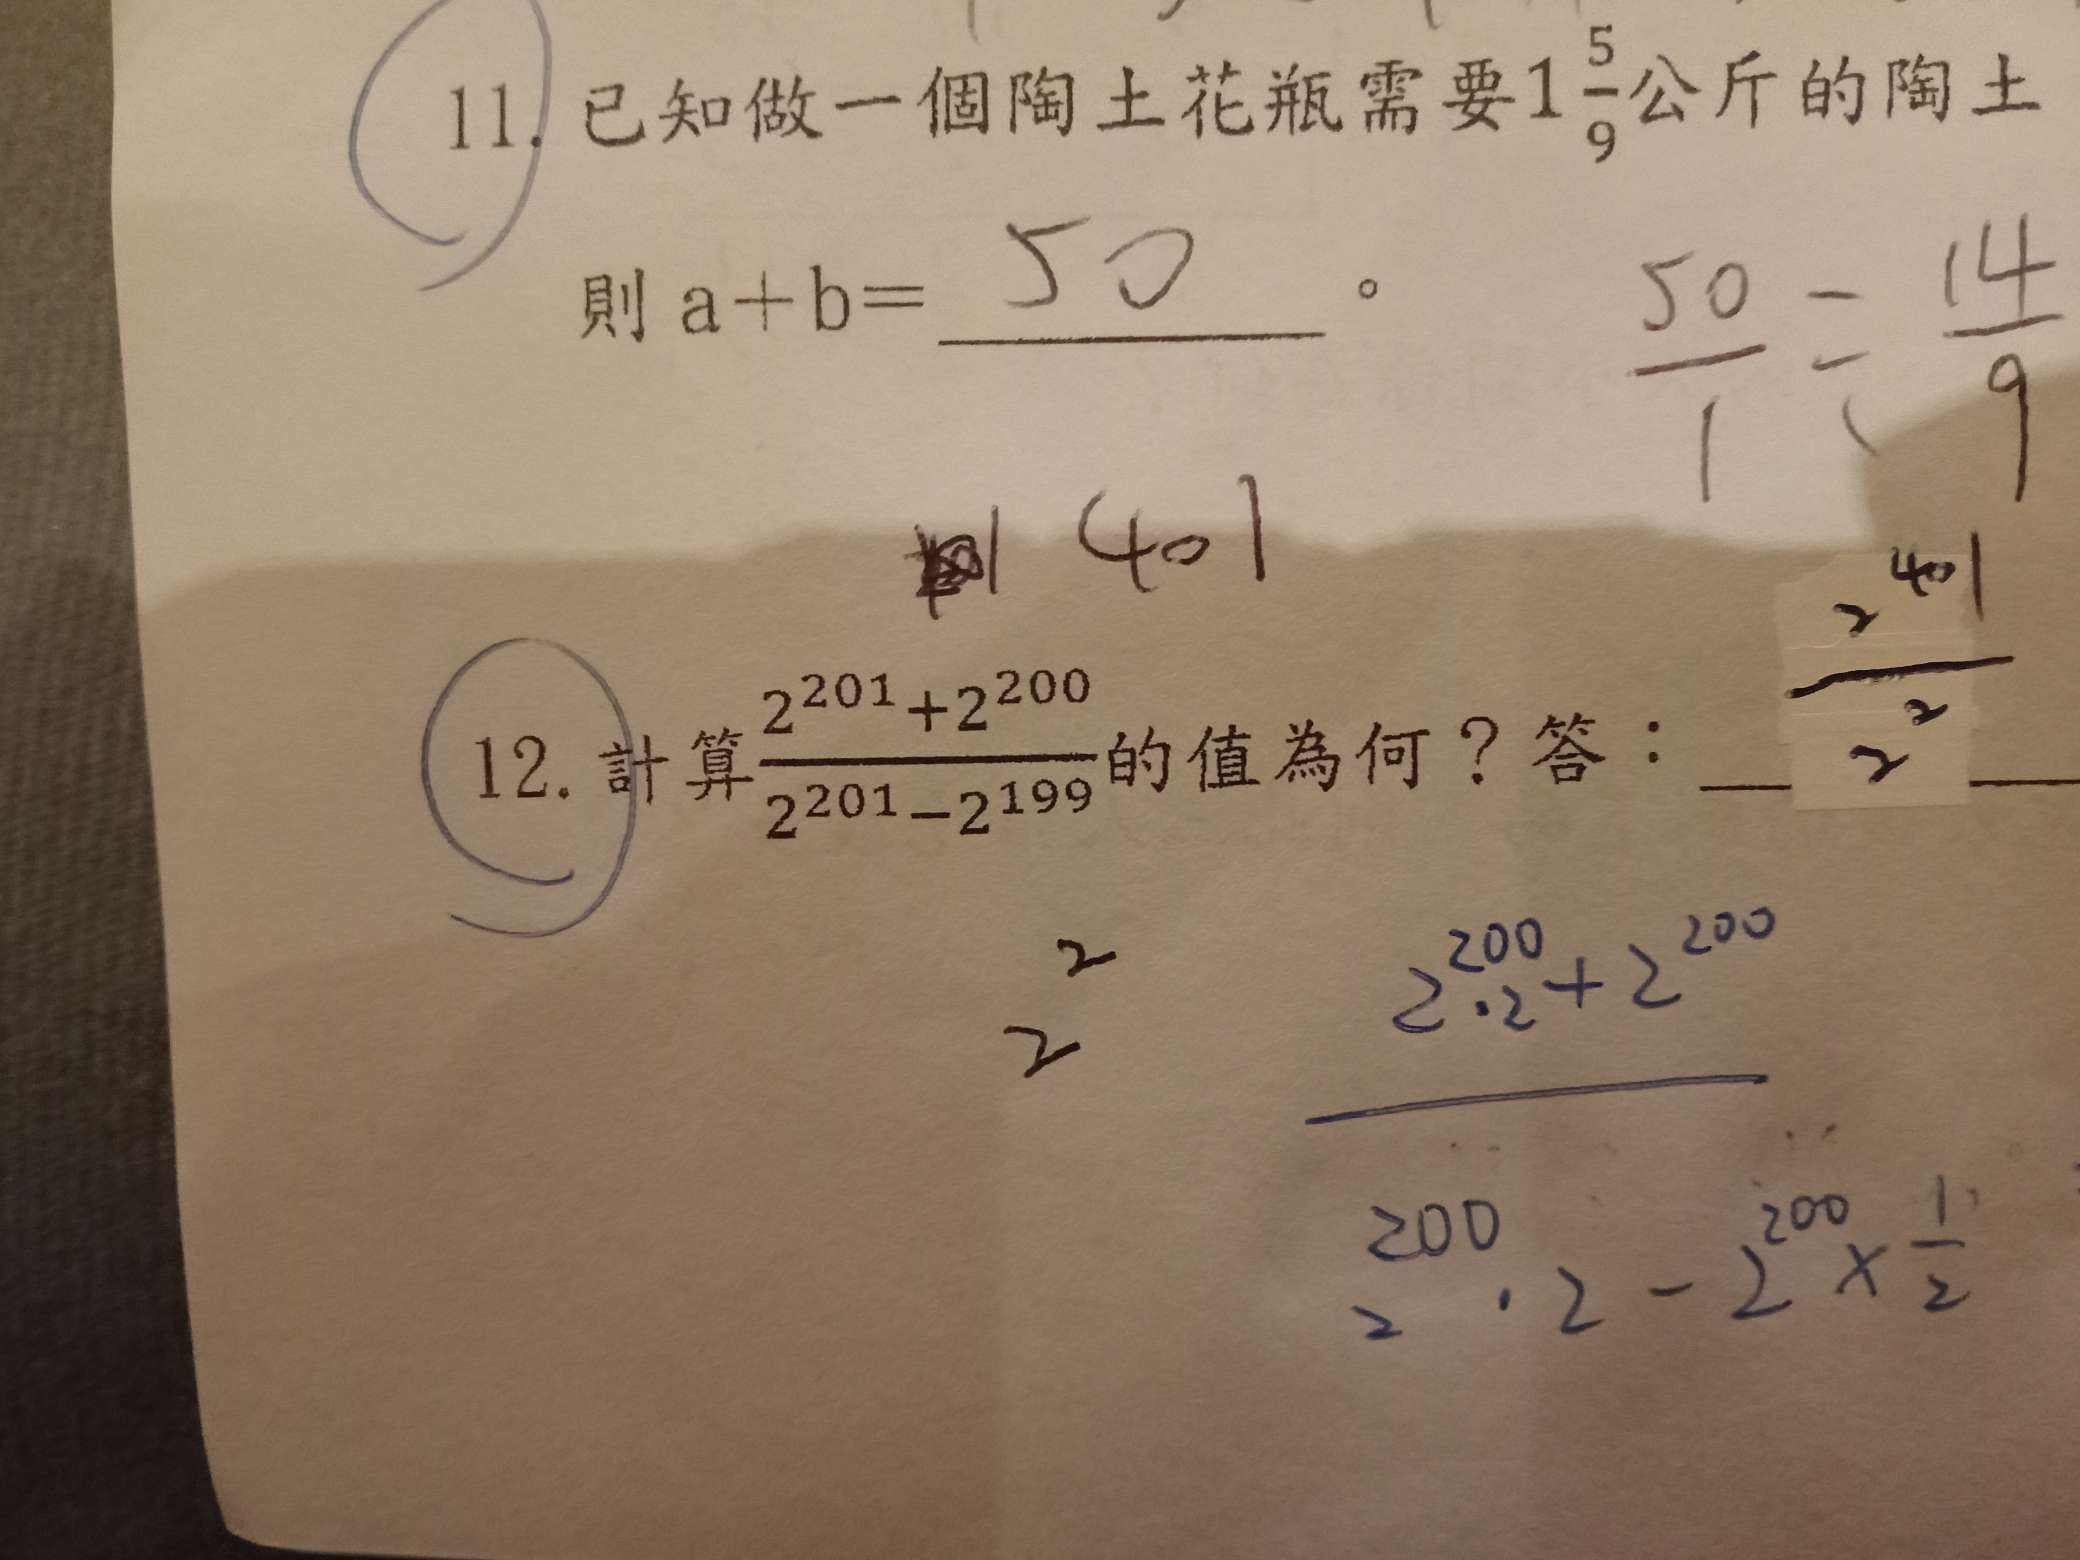 11. 已知做一個陶土花瓶需要1 5/9公斤的陶土
則 a+b= 50 。
50/1 = 14/9
401
2^401/2^2
12. 計算 (2^201+2^200)/(2^201−2^199) 的值為何？答：
2^2
2^200·2+2^200
2^200·2−2^200×1/2